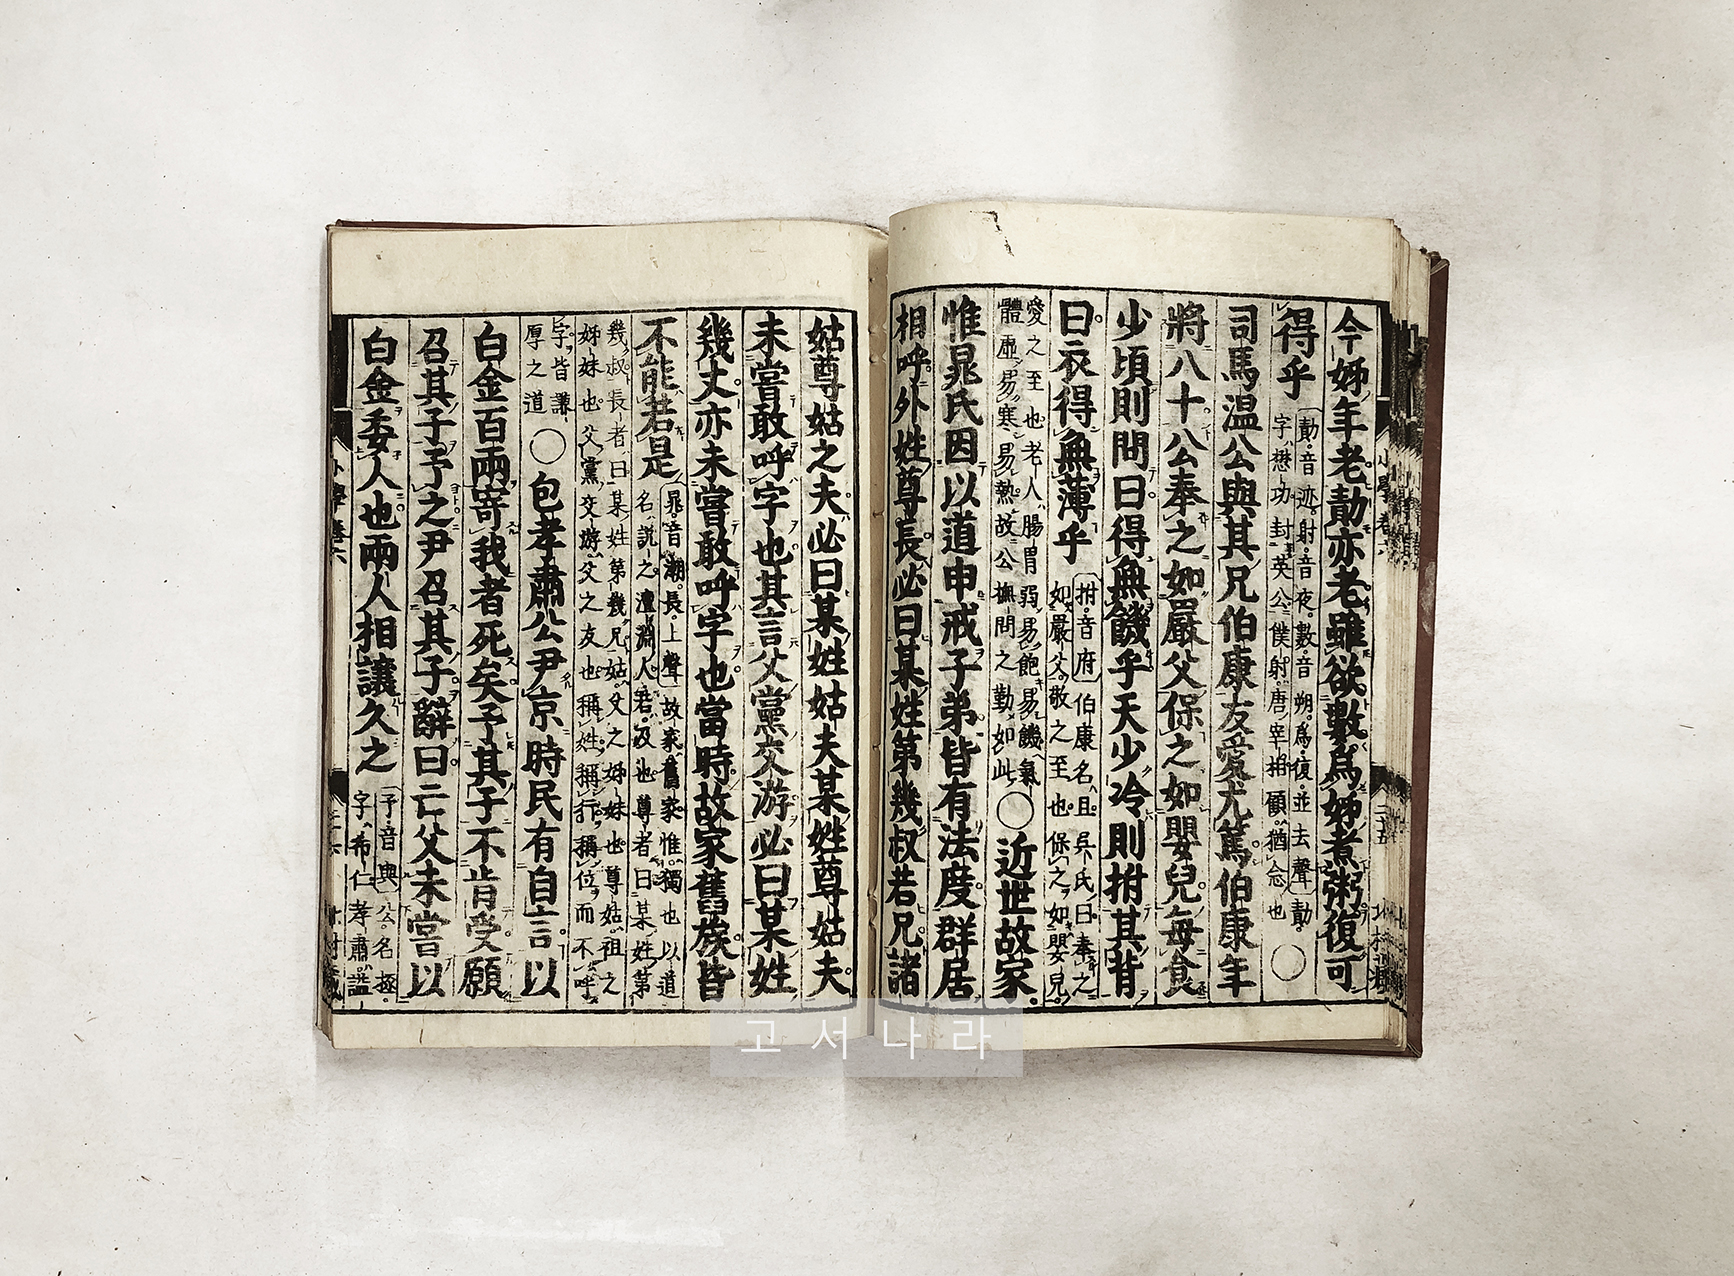 今姊年老勣亦老雖欲數爲姊煮粥復可
得乎 勣音迹射音夜數音朔爲復並去聲勣
字懋功封英公僕射唐宰相顧猶念也 ○
司馬温公與其兄伯康友愛尤篤伯康年
將八十公奉之如嚴父保之如嬰兒毎食
少頃則問曰得無饑乎天少冷則拊其背
曰衣得無薄乎 拊音府 伯康名旦呉氏曰奉之
如嚴父敬之至也保之如嬰兒
愛之至也老人腸胃弱易飽易饑氣
體虚易寒易熱故公撫問之勤如此 ○近世故家
惟晁氏因以道申戒子弟皆有法度群居
相呼外姓尊長必曰某姓第幾叔若兄諸
姑尊姑之夫必曰某姓姑夫某姓尊姑夫
未嘗敢呼字也其言父黨交游必曰某姓
幾丈亦未嘗敢呼字也當時故家舊族皆
不能若是 晁音潮長上聲 故家舊家惟獨也以道
名説之澶淵人若及也尊者曰某姓第
幾叔長者曰某姓第幾兄姑父之姊妹也尊姑祖之
姊妹也父黨交游父之友也稱姓稱行稱位而不呼
字皆謙
厚之道 ○包孝肅公尹京時民有自言以
白金百兩寄我者死矣予其子不肯受願
召其子予之尹召其子辭曰亡父未嘗以
白金委人也兩人相讓久之 予音與 公名拯
字希仁孝肅謚
小學卷六
二十五
小學卷六
二十六
고서나라